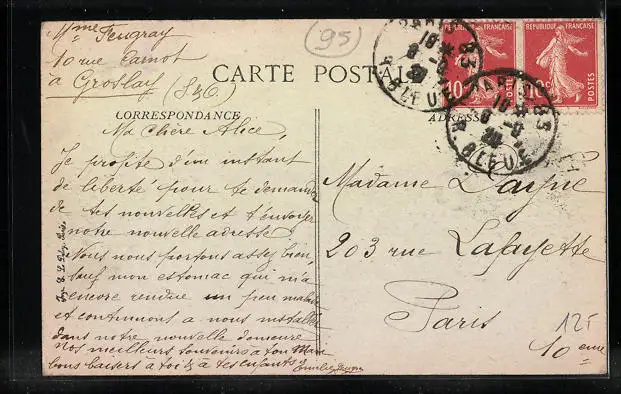 Mme Feugray
10 rue Carnot
à Groslay (S&O)
95
CARTE POSTALE
CORRESPONDANCE
ADRESSE
REPUBLIQUE FRANÇAISE
REPUBLIQUE FRANÇAISE
10c
POSTES
10c
POSTES
PARIS 83
R. BLEUE
PARIS 83
R. BLEUE
Ma Chère Alice,
Je profite d'un instant
de liberté pour te demander
de tes nouvelles et t'envoyer
notre nouvelle adresse
Nous nous portons assez bien,
sauf mon estomac qui m'a
encore rendue un peu malade
et continuons à nous installer
dans notre nouvelle demeure
Nos meilleurs souvenirs à ton Mari
bons baisers à toi & à tes enfants
Emilie
Madame Layne
203 rue Lafayette
Paris
10eme